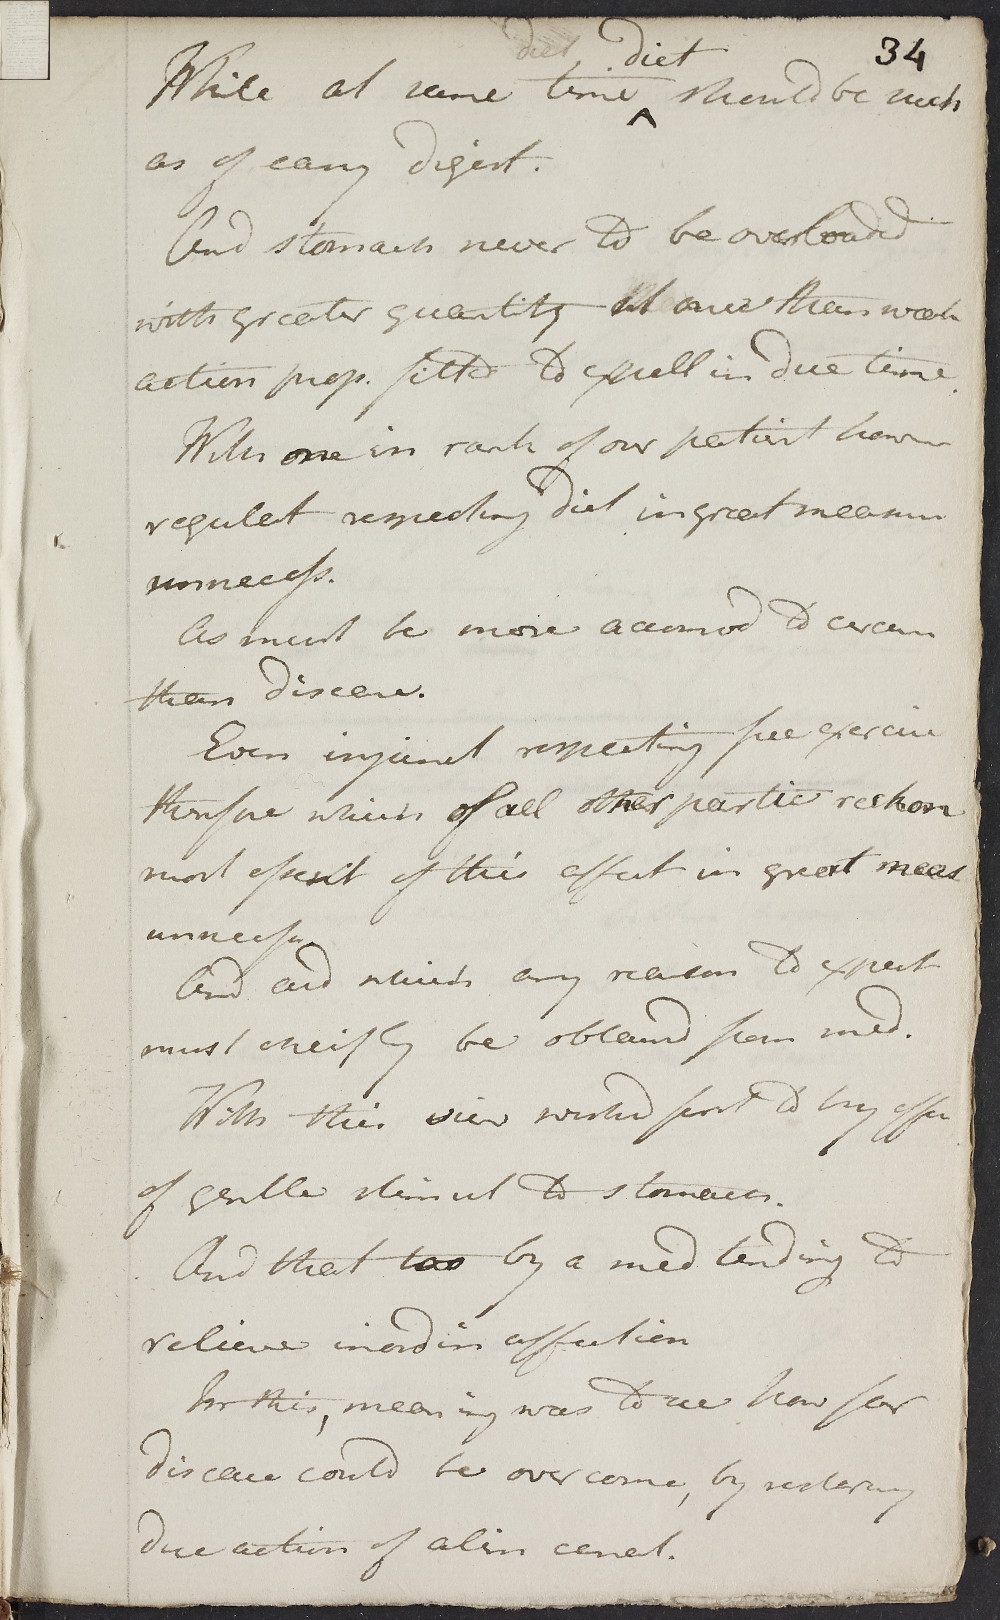 34
diet diet
While at same time ^ should be such
as of easy digest.
And stomach never to be overloaded
with greater quantity at once than weak
action prop. fitted to expell in due time.
With one in rank of our patient howev
regulat respecting diet in great measur
unnecess.
As must be more accomod to circum
than disease.
Even injunct respecting free exercise
therefore which of all other partic reckon
most essent of this affect in great meas
unnecess
And aid which any reason to expect
must cheifly be obtaind from med.
With this view wished first to try effec
of gentle stimul to stomach.
And that too by a med tending to
relieve inordin affection
In this, meaning was to see how far
disease could be overcome, by restoring
due action of alim canal.